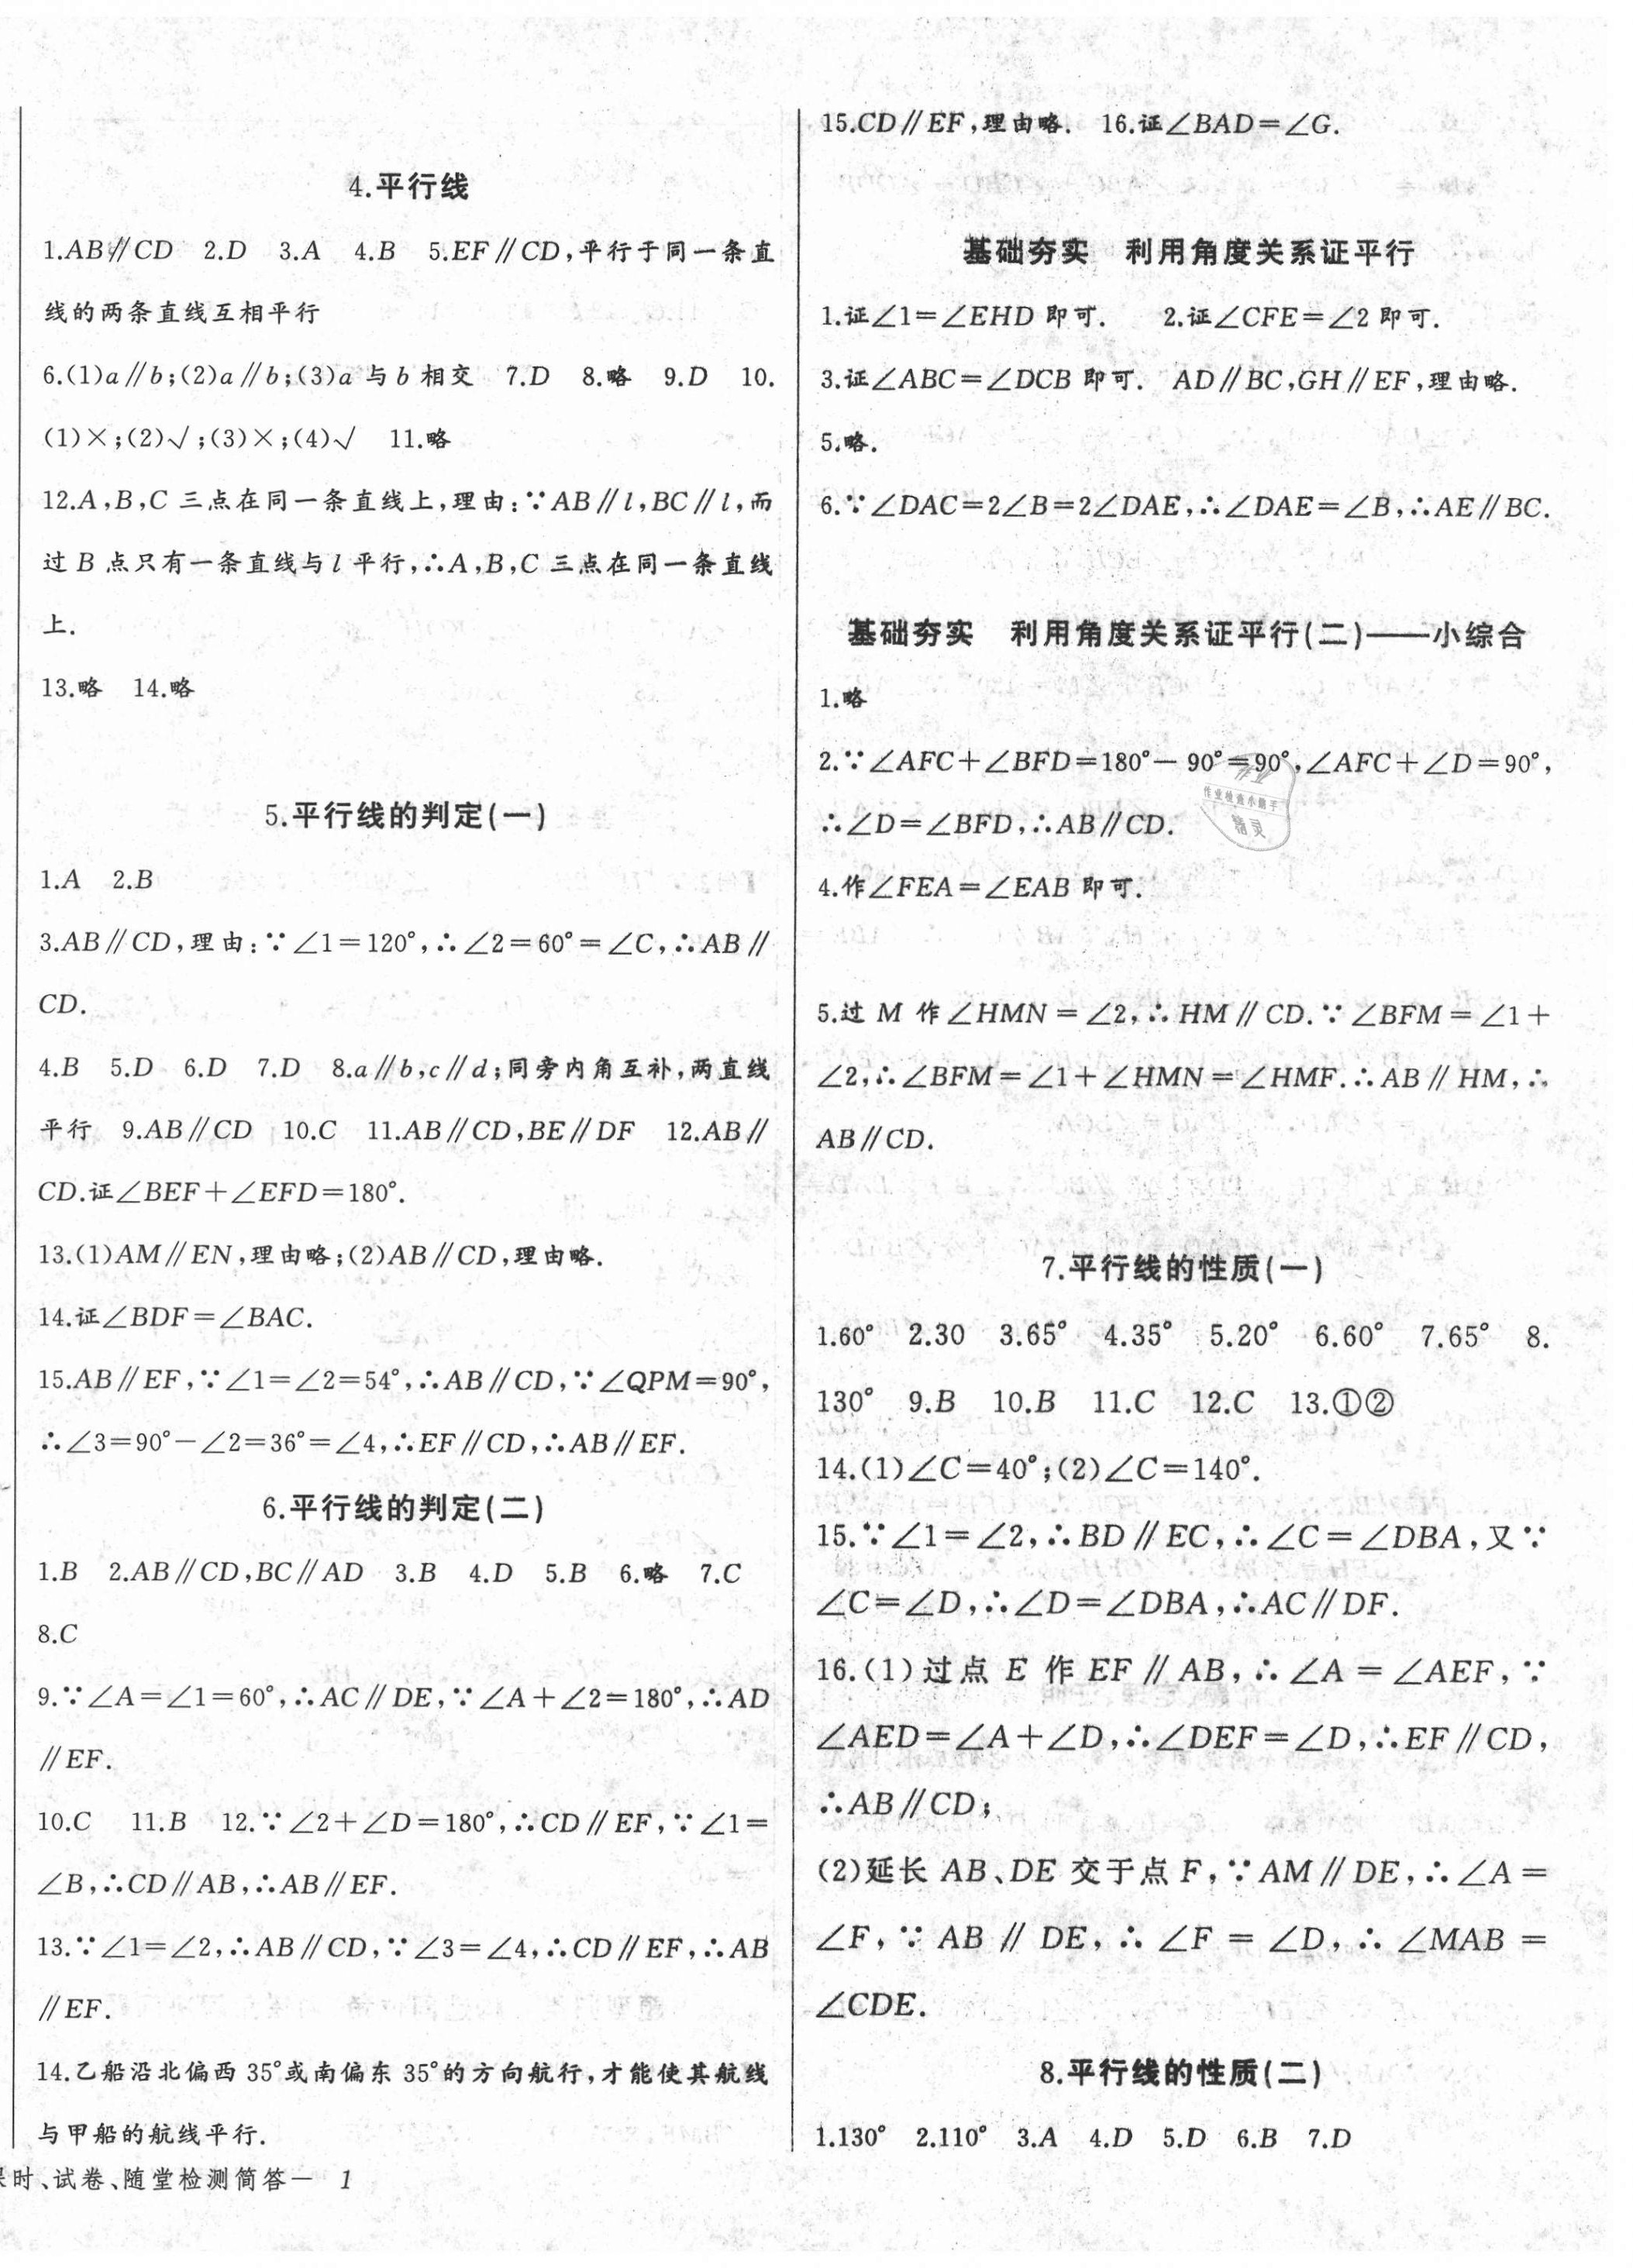 4.平行线
1.AB∥CD 2.D 3.A 4.B 5.EF∥CD,平行于同一条直
线的两条直线互相平行
6.(1)a∥b;(2)a∥b;(3)a与b相交 7.D 8.略 9.D 10.
(1)×;(2)√;(3)×;(4)√ 11.略
12.A,B,C三点在同一条直线上,理由:∵AB∥l,BC∥l,而
过B点只有一条直线与l平行,∴A,B,C三点在同一条直线
上.
13.略 14.略
5.平行线的判定(一)
1.A 2.B
3.AB∥CD,理由:∵∠1=120°,∴∠2=60°=∠C,∴AB∥
CD.
4.B 5.D 6.D 7.D 8.a∥b,c∥d;同旁内角互补,两直线
平行 9.AB∥CD 10.C 11.AB∥CD,BE∥DF 12.AB∥
CD.证∠BEF+∠EFD=180°.
13.(1)AM∥EN,理由略;(2)AB∥CD,理由略.
14.证∠BDF=∠BAC.
15.AB∥EF,∵∠1=∠2=54°,∴AB∥CD,∵∠QPM=90°,
∴∠3=90°-∠2=36°=∠4,∴EF∥CD,∴AB∥EF.
6.平行线的判定(二)
1.B 2.AB∥CD,BC∥AD 3.B 4.D 5.B 6.略 7.C
8.C
9.∵∠A=∠1=60°,∴AC∥DE,∵∠A+∠2=180°,∴AD
∥EF.
10.C 11.B 12.∵∠2+∠D=180°,∴CD∥EF,∵∠1=
∠B,∴CD∥AB,∴AB∥EF.
13.∵∠1=∠2,∴AB∥CD,∵∠3=∠4,∴CD∥EF,∴AB
∥EF.
14.乙船沿北偏西35°或南偏东35°的方向航行,才能使其航线
与甲船的航线平行.
时、试卷、随堂检测简答— 1
15.CD∥EF,理由略. 16.证∠BAD=∠G.
基础夯实 利用角度关系证平行
1.证∠1=∠EHD即可. 2.证∠CFE=∠2即可.
3.证∠ABC=∠DCB即可. AD∥BC,GH∥EF,理由略.
5.略.
6.∵∠DAC=2∠B=2∠DAE,∴∠DAE=∠B,∴AE∥BC.
基础夯实 利用角度关系证平行(二)——小综合
1.略
2.∵∠AFC+∠BFD=180°-90°=90°,∠AFC+∠D=90°,
作业检查小助手
精灵
∴∠D=∠BFD,∴AB∥CD.
4.作∠FEA=∠EAB即可.
5.过M作∠HMN=∠2,∴HM∥CD.∵∠BFM=∠1+
∠2,∴∠BFM=∠1+∠HMN=∠HMF.∴AB∥HM,∴
AB∥CD.
7.平行线的性质(一)
1.60° 2.30 3.65° 4.35° 5.20° 6.60° 7.65° 8.
130° 9.B 10.B 11.C 12.C 13.①②
14.(1)∠C=40°;(2)∠C=140°.
15.∵∠1=∠2,∴BD∥EC,∴∠C=∠DBA,又∵
∠C=∠D,∴∠D=∠DBA,∴AC∥DF.
16.(1)过点E作EF∥AB,∴∠A=∠AEF,∵
∠AED=∠A+∠D,∴∠DEF=∠D,∴EF∥CD,
∴AB∥CD;
(2)延长AB、DE交于点F,∵AM∥DE,∴∠A=
∠F,∵AB∥DE,∴∠F=∠D,∴∠MAB=
∠CDE.
8.平行线的性质(二)
1.130° 2.110° 3.A 4.D 5.D 6.B 7.D